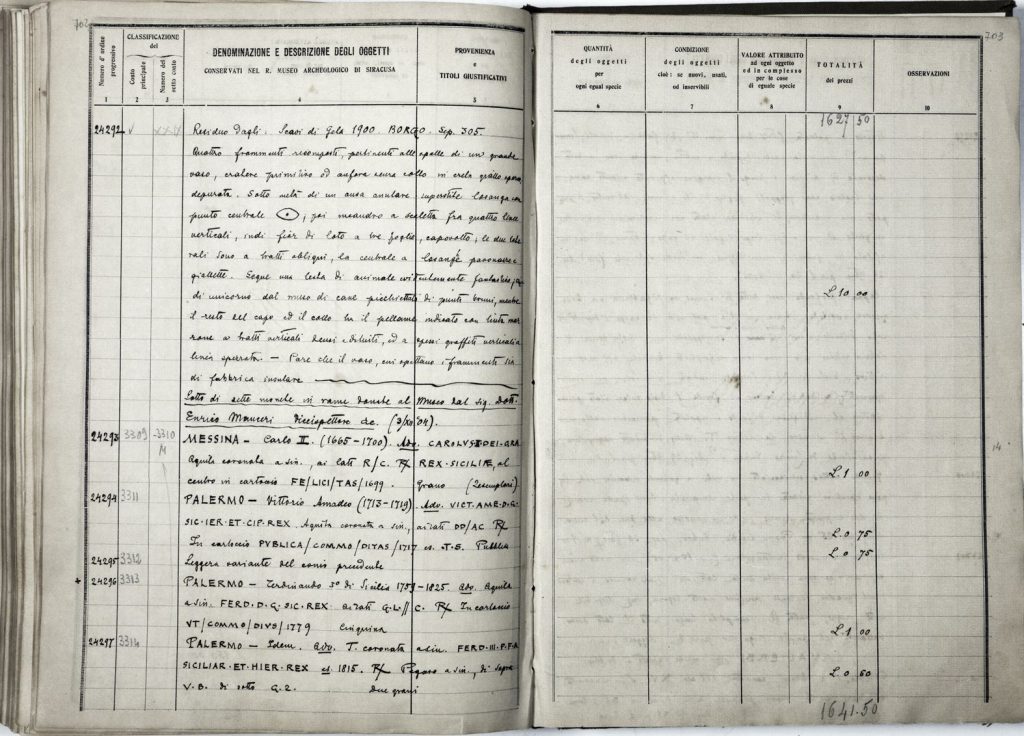 702
Numero d'ordine progressivo
CLASSIFICAZIONE del
Conto principale
Numero del sotto conto
DENOMINAZIONE E DESCRIZIONE DEGLI OGGETTI
CONSERVATI NEL R. MUSEO ARCHEOLOGICO DI SIRACUSA
PROVENIENZA
e
TITOLI GIUSTIFICATIVI
1 2 3 4 5
24292 Residuo dagli Scavi di Gela 1900. BORGO. Sep. 305.
Quattro frammenti ricomposti, pertinenti alle spalle di un grande
vaso, cratere primitivo od anfora senza collo in creta gialla
depurata. Sotto metà di un ansa anulare superstite losanga con
punto centrale, poi meandro a scaletta fra quattro linee
verticali, indi fior di loto a tre foglie, capovolto; le due late
rali sono a tratti obliqui, la centrale a losanghe paonazze e
giallette. Segue una testa di animale evidentemente fantastico,
di unicorno dal muso di cane picchiettato di punti bruni, mentre
il resto del capo ed il collo ha il pellame indicato con tinta mar
rone a tratti verticali densi e diluiti, ed a spessi graffiti verticali a
linea spezzata. — Pare che il vaso, cui spettano i frammenti sia
di fabbrica insulare
Lotto di sette monete in rame donate al Museo dal sig. Dott.
Enrico Mauceri Viceispettore &c.
24293 3309 -3310 MESSINA - Carlo II. (1665-1700). Adv. CAROLVS II DEI. GRA
M Aquila coronata a sin., ai lati R/C. R/ REX. SICILIÆ, al
centro in cartoccio FE/LICI/TAS/1699. Grano (2 esemplari)
24294 3311 PALERMO - Vittorio Amedeo (1713-1719). Adv. VICT. AME. D. G.
SIC. IER. ET. CIP. REX. Aquila coronata a sin., ai lati DD/AC R/
In cartoccio PVBLICA/COMMO/DITAS/1717 es. T. S. Pubblica
24295 3312 Leggera variante del conio precedente
+ 24296 3313 PALERMO - Ferdinando 3° di Sicilia 1759-1825. Adv. Aquila
a sin. FERD. D. G. SIC. REX. ai lati G. L. // C. R/ In cartoccio
VT/COMMO/DIVS/1779 Cinquina
24297 3314 PALERMO - Idem. Adv. T. coronata a sin. FERD. III. P. F. A
SICILIAR. ET. HIER. REX es. 1815. R/ Pegaso a sin., di sopra
V. B. di sotto G. 2. due grani
703
QUANTITÀ
degli oggetti
per
ogni egual specie
CONDIZIONE
degli oggetti
cioè: se nuovi, usati,
od inservibili
VALORE ATTRIBUITO
ad ogni oggetto
ed in complesso
per le cose
di eguale specie
TOTALITÀ
dei prezzi
OSSERVAZIONI
6 7 8 9 10
1627 50
L. 10 00
L. 1 00
L. 0 75
L. 0 75
L. 1 00
L. 0 50
1641.50